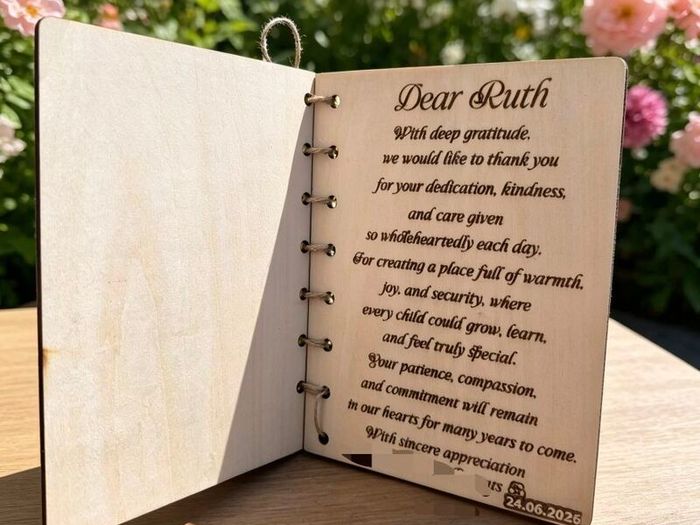 Dear Ruth
With deep gratitude,
we would like to thank you
for your dedication, kindness,
and care given
so wholeheartedly each day.
For creating a place full of warmth,
joy, and security, where
every child could grow, learn,
and feel truly special.
Your patience, compassion,
and commitment will remain
in our hearts for many years to come.
With sincere appreciation
24.06.2026